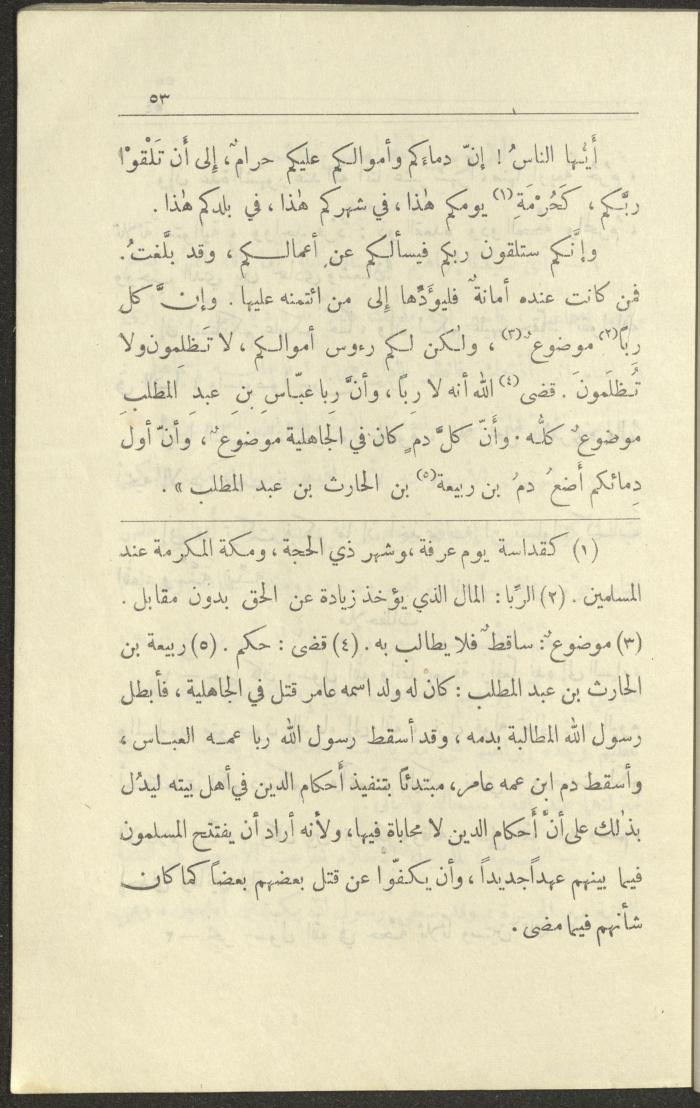 ٥٣
أَيُّها الناسُ ! إنّ دماءَكم وأموالكم عليكم حرامٌ، إِلى أَن تَلْقوْا
ربَّكم ، كَحُرْمَةِ (١) يومكم هٰذا ، في شهركم هٰذا ، في بلدكم هٰذا .
وإنَّكم ستلقون ربكم فيسألكم عن أعمالكم ، وقد بلَّغتُ.
فمن كانت عنده أمانةٌ فليؤَدِّها إلى من ائتمنه عليها . وإنَّ كل
رِبًا(٢) موضوعٌ(٣) ، ولٰكن لكم رءوس أموالكم ، لا تَظلِمون ولا
تُظلَمونَ . قضى(٤) الله أنه لا رِبًا ، وأنَّ رِبا عبّاسِ بنِ عبدِ المطلبِ
موضوعٌ كلُّه . وأَنّ كلَّ دمٍ كان في الجاهلية موضوعٌ ، وأنّ أول
دِمائكم أَضعُ دمُ بن ربيعة(٥) بن الحارث بن عبد المطلب » .
(١) كقداسة يوم عرفة ،وشهر ذي الحجة ، ومكة المكرمة عند
المسلمين . (٢) الرِّبا : المال الذي يؤخذ زيادة عن الحق بدون مقابل .
(٣) موضوعٌ : ساقطٌ فلا يطالب به . (٤) قضى : حكم . (٥) ربيعة بن
الحارث بن عبد المطلب : كان له ولد اسمه عامر قتل في الجاهلية ، فأبطل
رسول الله المطالبة بدمه ، وقد أسقط رسول الله ربا عمه العباس ،
وأسقط دم ابن عمه عامر، مبتدئاً بتنفيذ أَحكام الدين في أهل بيته ليدُل
بذٰلك على أنَّ أَحكام الدين لا محاباة فيها، ولأنه أراد أن يفتتح المسلمون
فيما بينهم عهداً جديداً ، وأن يكفّوا عن قتل بعضهم بعضاً كما كان
شأنهم فيما مضى .